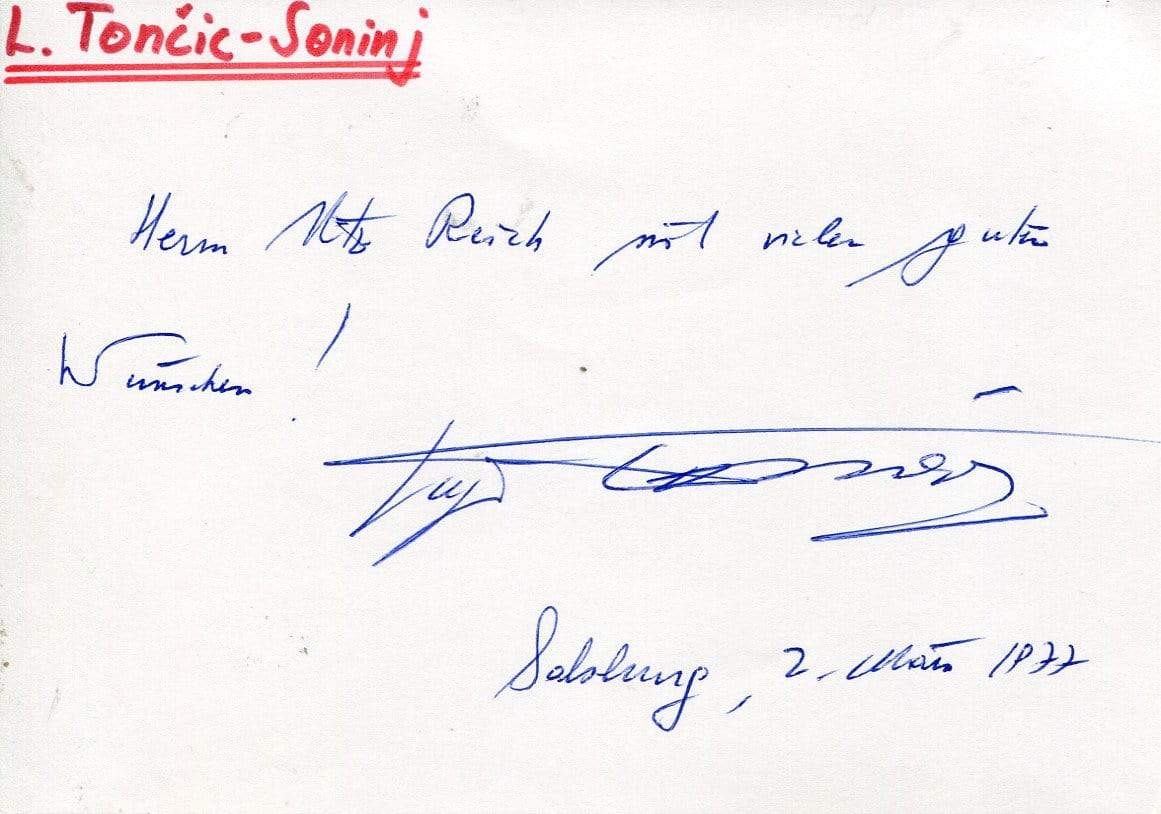 L. Tončic-Soninj
Herrn Utz Reich mit vielen guten
Wünschen!
Lujo Tončić
Salzburg, 2. März 1977